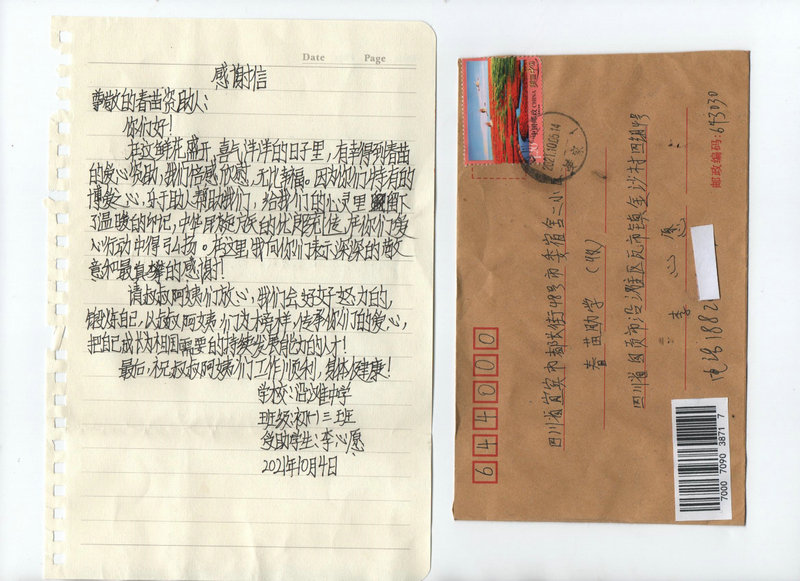 Date Page
感谢信
尊敬的春苗资助人：
你们好！
在这鲜花盛开，喜气洋洋的日子里，有幸得到春苗
的爱心资助，我们倍感欣慰，无比幸福。因为你们特有的
博爱之心，乐于助人帮助我们，给我们的心灵里留下
了温暖的印记，中华民族历来的优良传统，在你们爱
心行动中得弘扬。在这里我向你们表示深深的敬
意和最真挚的感谢！
请叔叔阿姨们放心，我们会好好努力的，
锻炼自己，以叔叔阿姨们为榜样，传承你们的爱心，
把自己成长为祖国需要的持续发展能力的人才！
最后，祝叔叔阿姨们工作顺利，身体健康！
学校：沿滩中学
班级：初一三班
受助学生：李心愿
2021年10月4日
中国邮政 CHINA
2021.10.05.14
邮政编码：643030
644000
四川省宜宾市都长街48号市委宿舍二小
春苗助学（收）
四川省自贡市沿滩区瓦市镇金沙村四组4号
李心愿
电话1882
7000 7090 3871 7